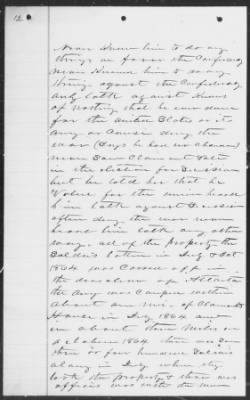 12
Never knew him to do any
thing in favor the Confederacy
never knew him to do any
thing against the Confederacy
only talk against them
of nothing that he ever done
for the United States or its
army or cause during the
war (Says he had no chance)
never saw Claimant vote
in the election for Secession
but he told her that he
voted for the union heard
him talk against Secession
often during the war never
heard him talk any other
way. all of the property the
Soldiers taken in July & Oct
1864 was Carried off in
the direction of Atlanta
the army was camped within
about one mi. of Claimants
House in July 1864 and
in about three miles in
October 1864 there was
three or four hundred Soldiers
along in July when they
took the property there was
officers was with the men